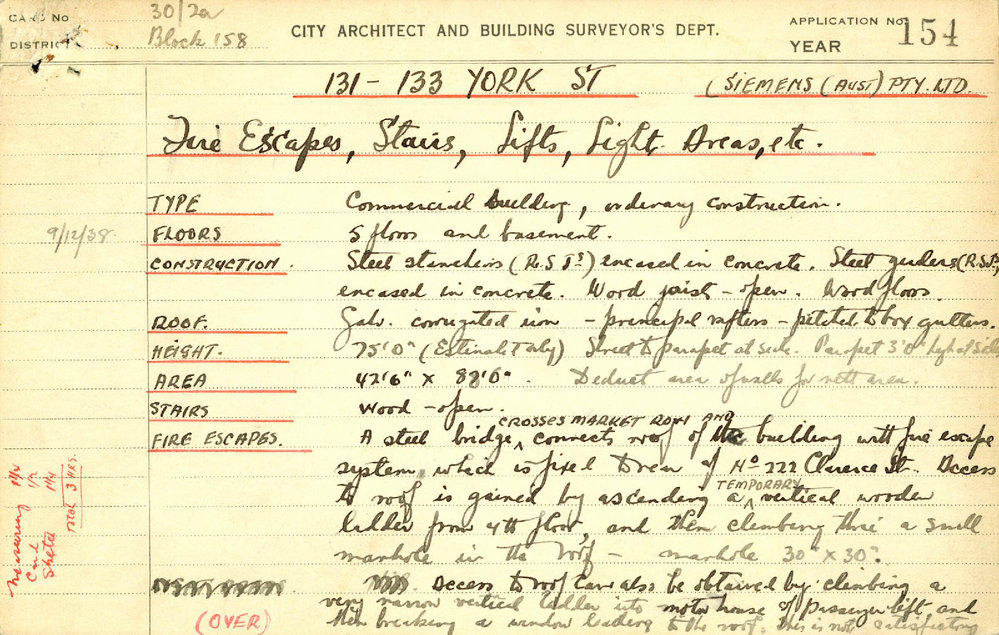 CARD No 30/2a
DISTRICT Block 158
CITY ARCHITECT AND BUILDING SURVEYOR'S DEPT.
APPLICATION No 154
YEAR
131 - 133 YORK ST (SIEMENS (AUST) PTY. LTD.
Fire Escapes, Stairs, Lifts, Light Areas, etc.
TYPE Commercial building, ordinary construction.
9/12/38 FLOORS 5 floors and basement.
CONSTRUCTION. Steel stanchions (R.S.JS) encased in concrete. Steel girders (R.S.JS)
encased in concrete. Wood joists - open. Wood floors.
ROOF. Galv. corrugated iron - principal rafters - pitched to box gutters.
HEIGHT. 75'0" (Estimated only) Street to parapet at side. Parapet 3'0" high at side
AREA 42'6" X 88'0". Deduct area of walls for nett area.
STAIRS Wood - open.
CROSSES MARKET ROW AND
FIRE ESCAPES. A steel bridge connects roof of the building with fire escape
system which is fixed to rear of No 222 Clarence St. Access
TEMPORARY
to roof is gained by ascending a vertical wooden
ladder from 4th floor, and then climbing thro' a small
manhole in the roof - manhole 30" X 30".
Access to roof can also be obtained by climbing a
very narrow vertical ladder into motor house of passenger lift and
then breaking a window leading to the roof. This is not satisfactory
(OVER)
Measuring 1 Hr
Card
Sketch 1 Hr
Total 3 HRS.